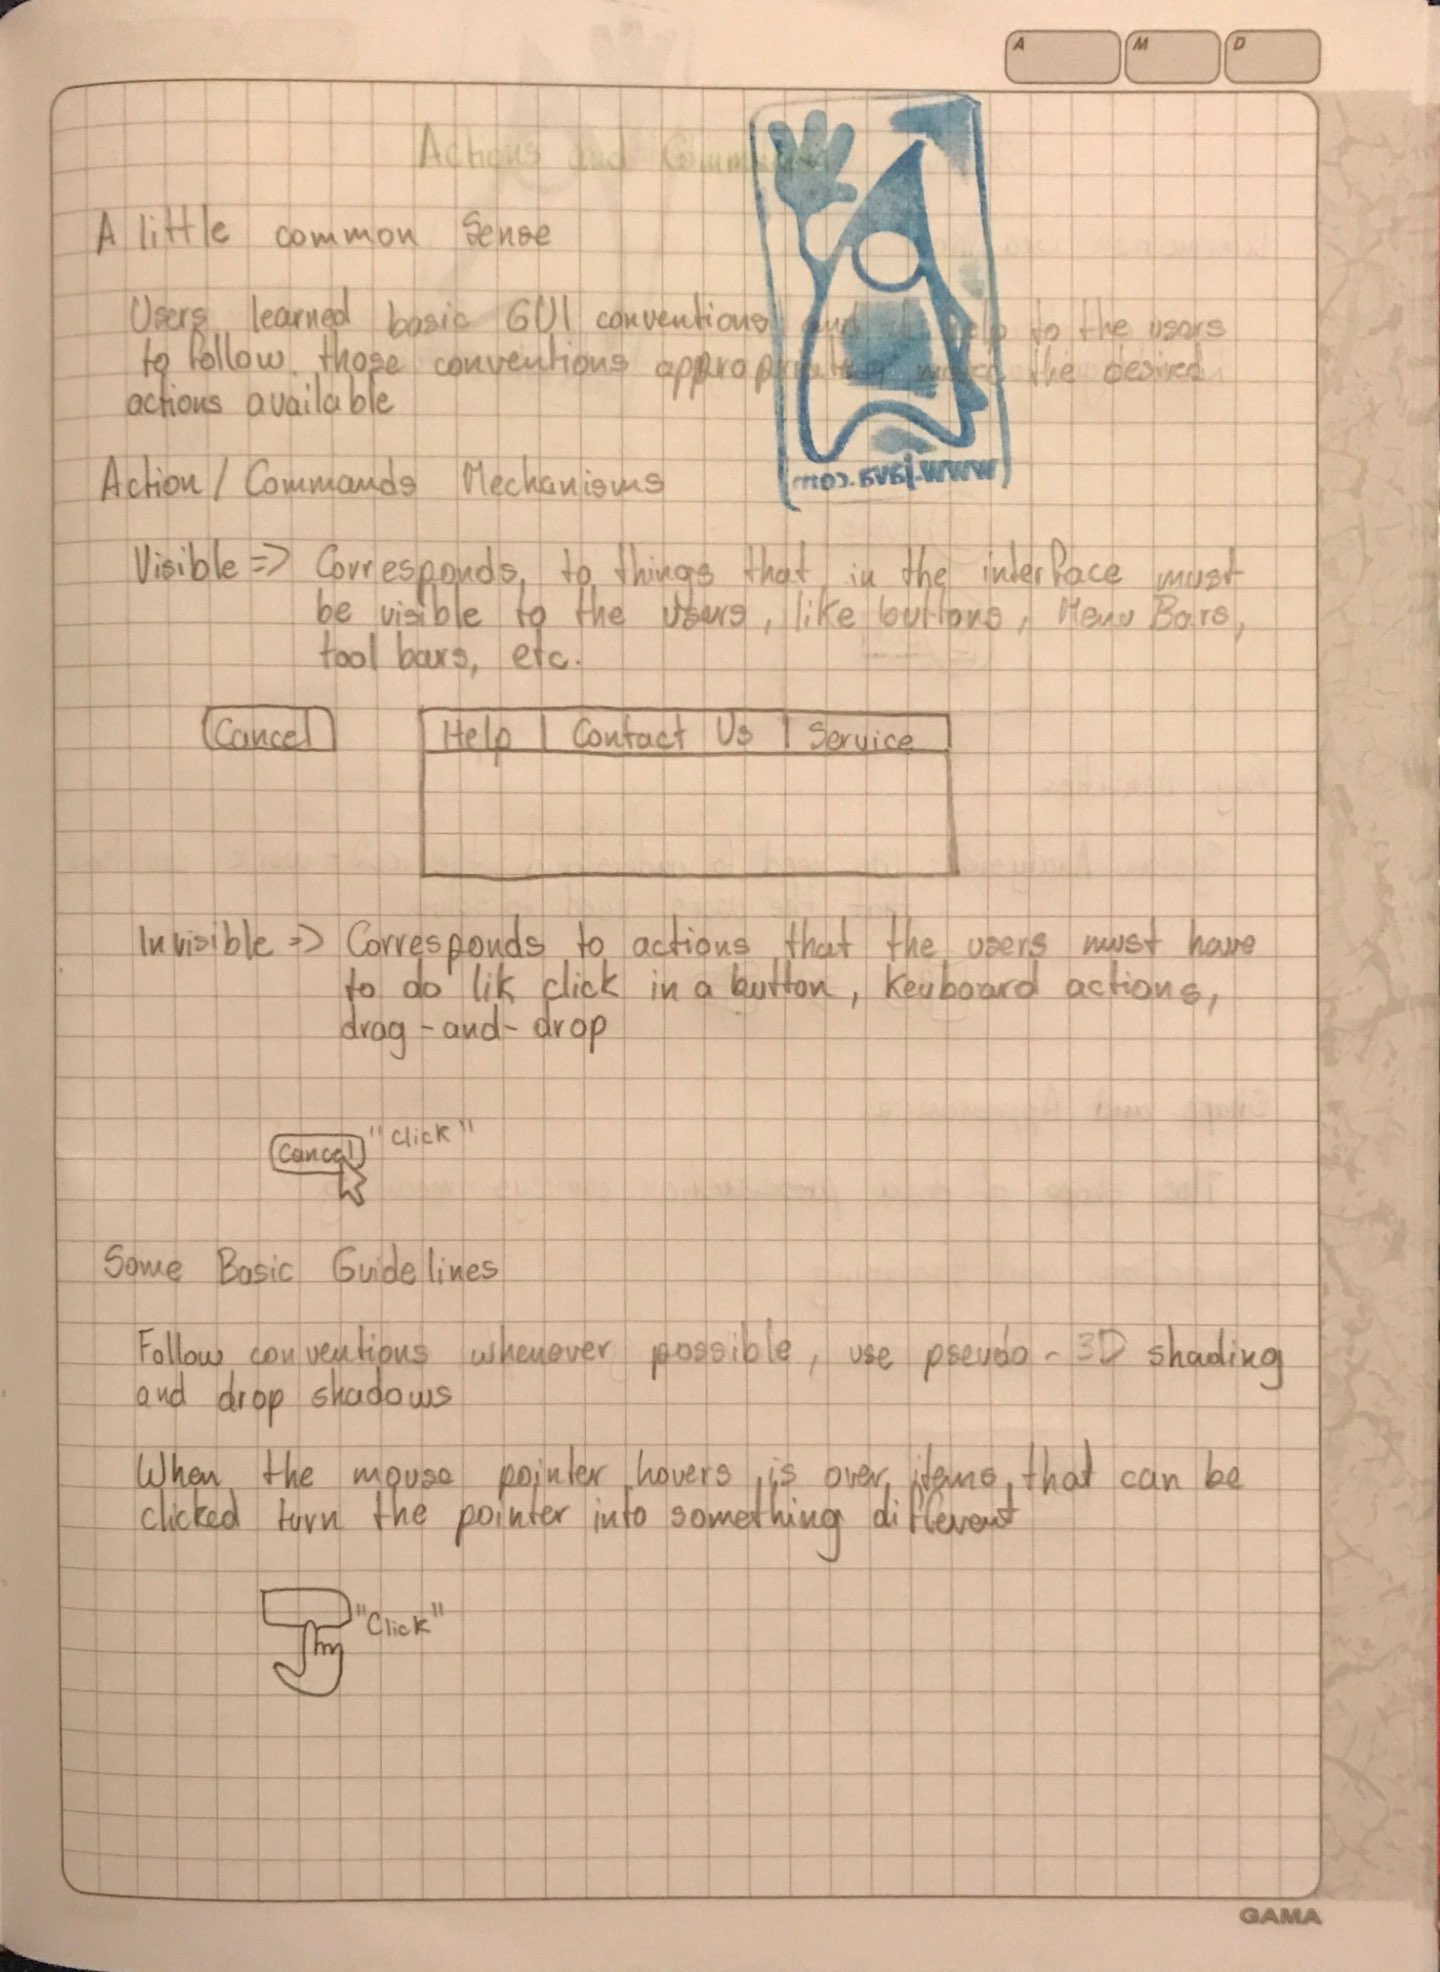 A M D
Actions and Commands
A little common Sense
Users learned basic GUI conventions and help to the users
to follow those conventions appropriately make the desired
actions available
www.java.com
Action / Commands Mechanisms
Visible => Corresponds to things that in the interface must
be visible to the users, like buttons, Menu Bars,
tool bars, etc.
Cancel Help | Contact Us | Service
Invisible => Corresponds to actions that the users must have
to do lik click in a button, keyboard actions,
drag-and-drop
Cancel "click"
Some Basic Guidelines
Follow conventions whenever possible, use pseudo-3D shading
and drop shadows
When the mouse pointer hovers is over items that can be
clicked turn the pointer into something different
"Click"
GAMA